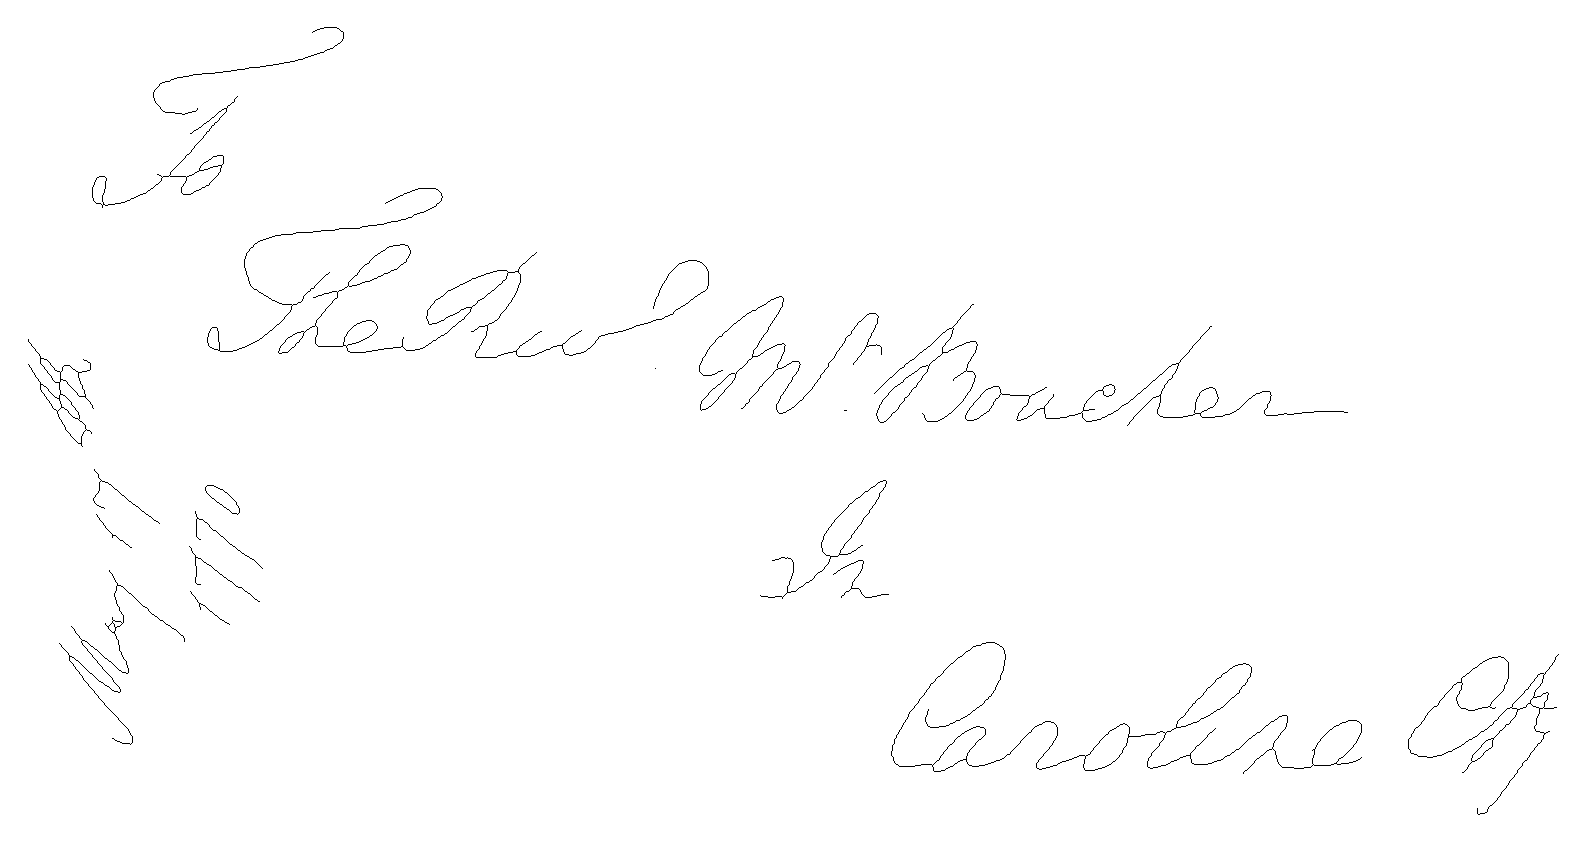 To
The Revd Mr. Boucher
In
Caroline Cty
May 17
1770